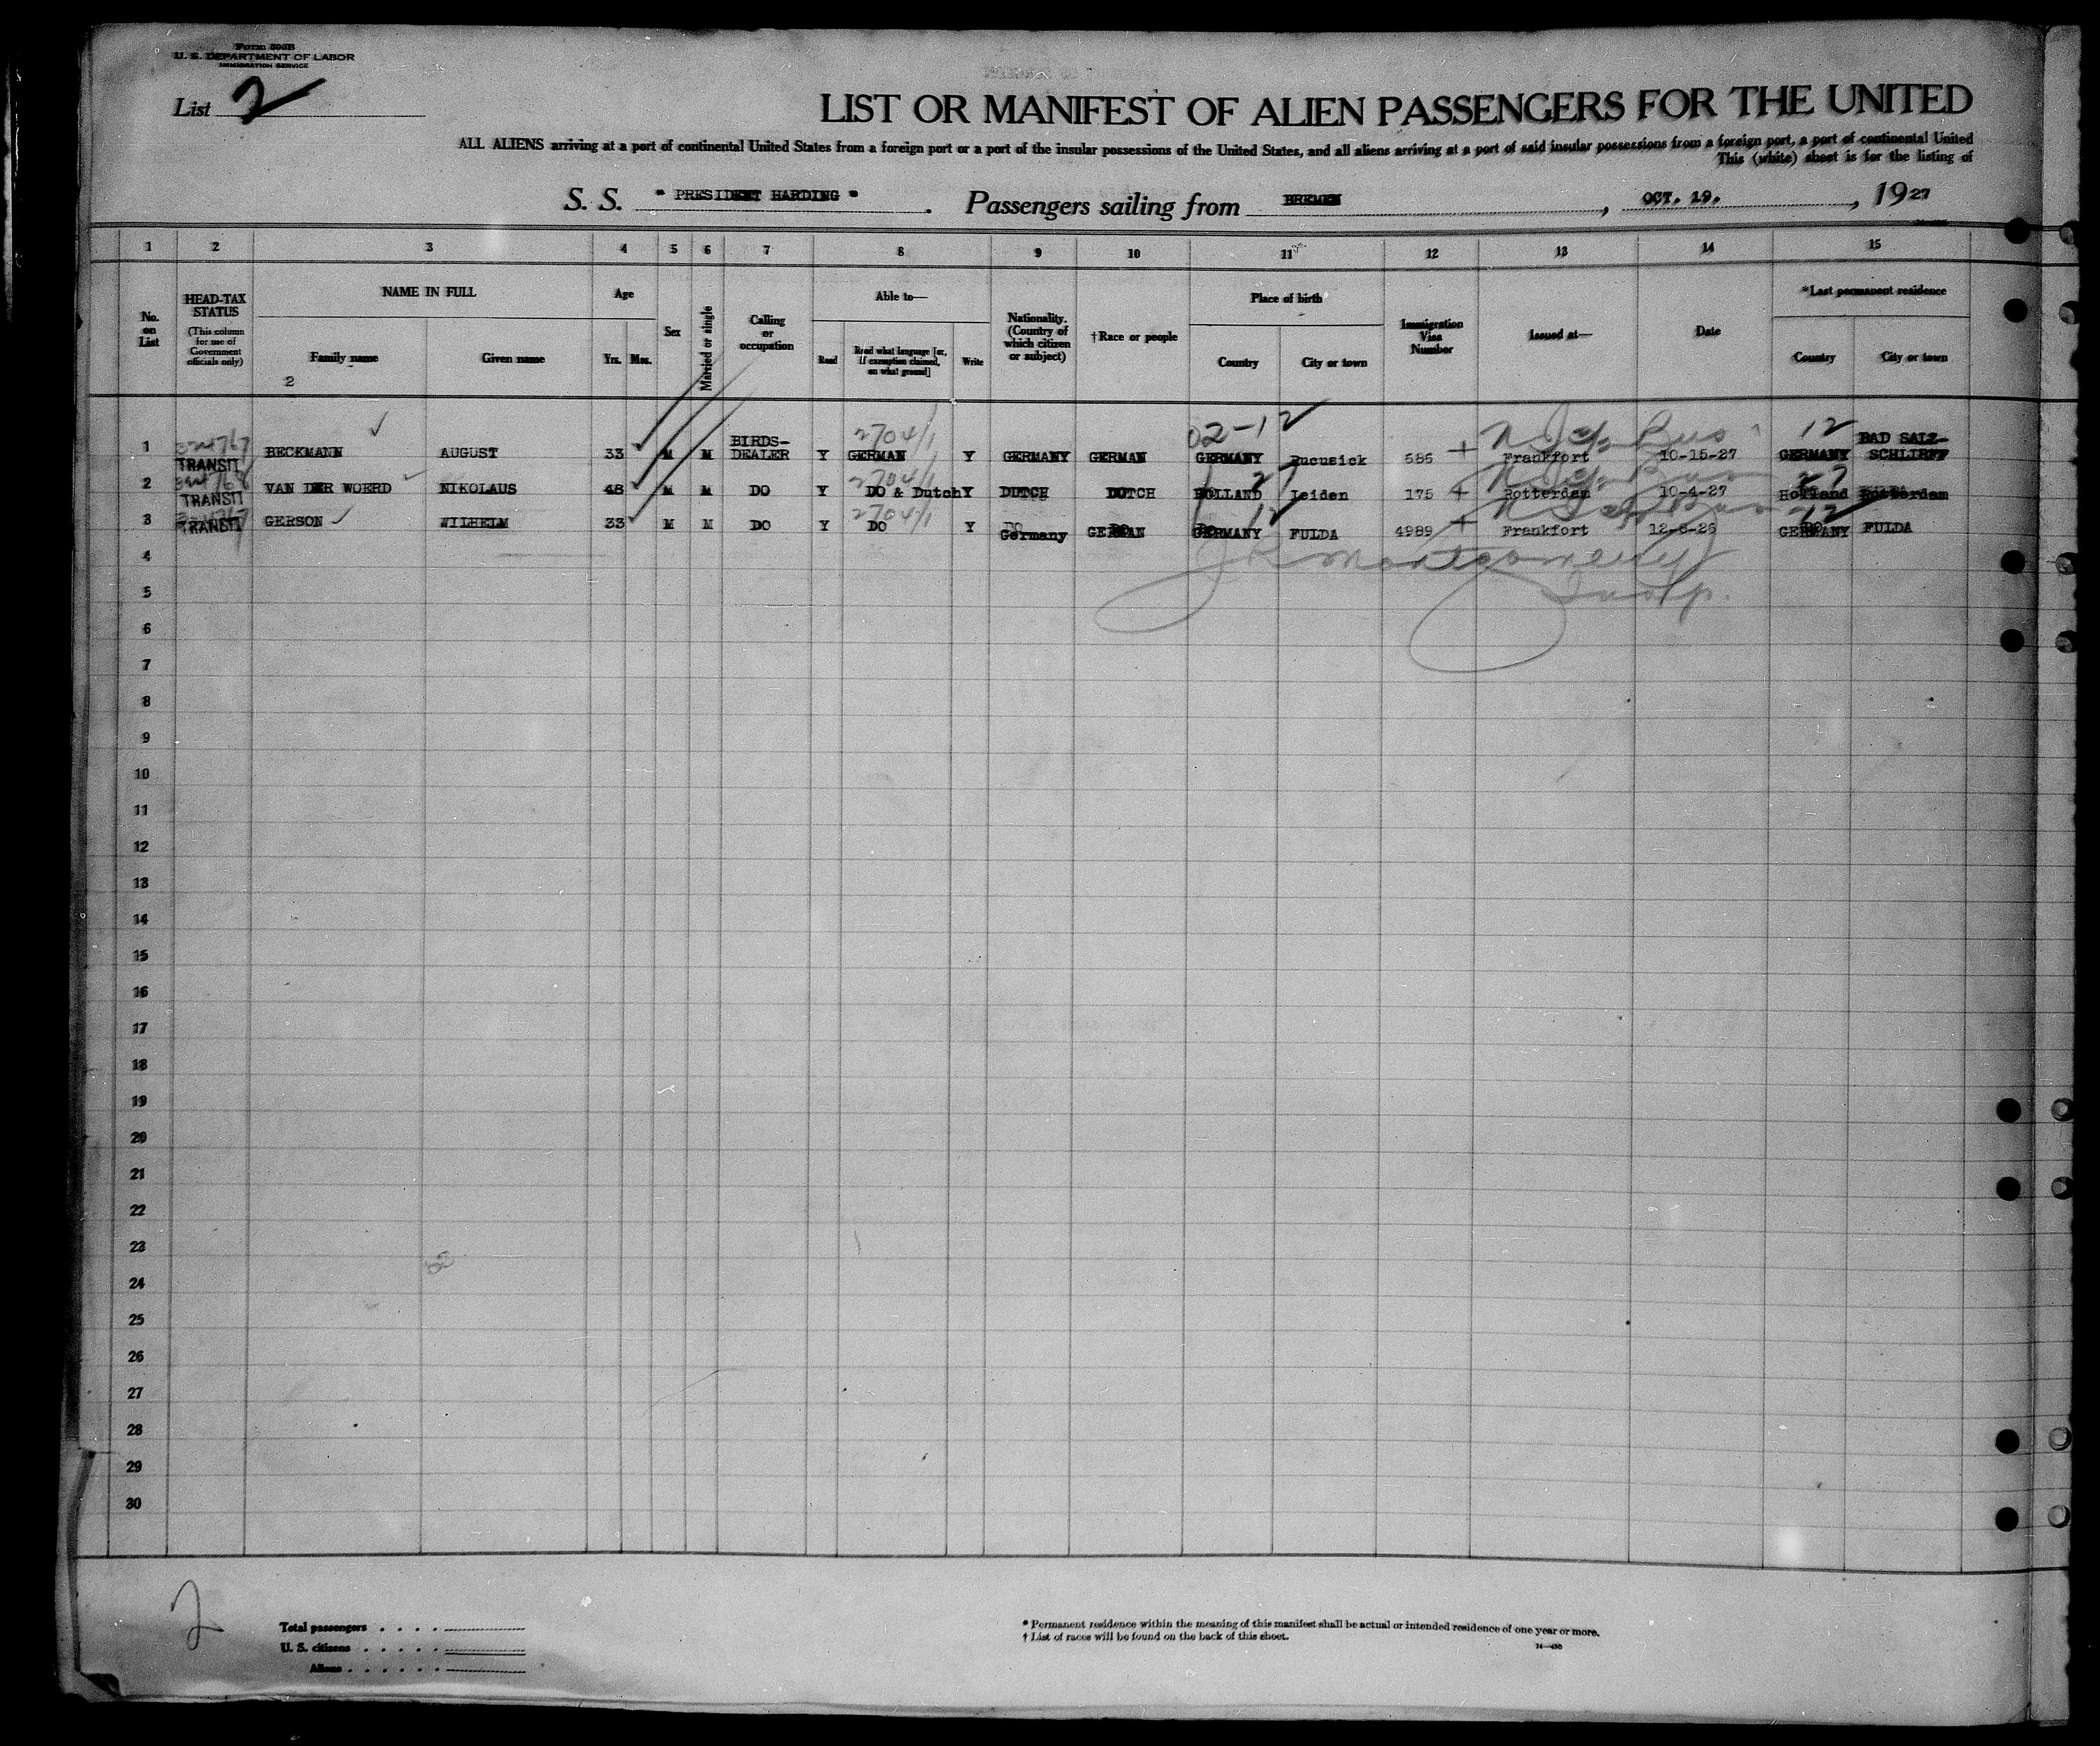 Form 500B
U. S. DEPARTMENT OF LABOR
IMMIGRATION SERVICE
List 2
LIST OR MANIFEST OF ALIEN PASSENGERS FOR THE UNITED
ALL ALIENS arriving at a port of continental United States from a foreign port or a port of the insular possessions of the United States, and all aliens arriving at a port of said insular possessions from a foreign port, a port of continental United
This (white) sheet is for the listing of
S. S. " PRESIDENT HARDING " . Passengers sailing from BREMEN , OCT. 19. , 1927
1 2 3 4 5 6 7 8 9 10 11 12 13 14 15
No. on List
HEAD-TAX STATUS
(This column for use of Government officials only)
NAME IN FULL
Family name
Given name
2
Age
Yrs. Mos.
Sex
Married or single
Calling or occupation
Able to—
Read
Read what language [or, if exemption claimed, on what ground]
Write
Nationality. (Country of which citizen or subject)
†Race or people
Place of birth
Country
City or town
Immigration Visa Number
Issued at—
Date
*Last permanent residence
Country
City or town
02-12 12
2704/1
1 TRANSIT BECKMANN AUGUST 33 M M BIRDS-DEALER Y GERMAN Y GERMANY GERMAN GERMANY Rucusick 686 Frankfort 10-15-27 GERMANY BAD SALZ-SCHLIRFF
2704/1 27 27
2 TRANSIT VAN DER WOERD NIKOLAUS 48 M M DO Y DO & Dutch Y DUTCH DUTCH HOLLAND Leiden 175 Rotterdam 10-4-27 Holland Rotterdam
2704/1 12 12
3 TRANSIT GERSON WILHELM 33 M M DO Y DO Y DO Germany GERMAN GERMANY FULDA 4989 Frankfort 12-6-26 GERMANY FULDA
4
Montgomery
5
Insp.
6
7
8
9
10
11
12
13
14
15
16
17
18
19
20
21
22
23
24
25
26
27
28
29
30
2
Total passengers . . . .
U. S. citizens . . . . .
Aliens . . . . . .
* Permanent residence within the meaning of this manifest shall be actual or intended residence of one year or more.
† List of races will be found on the back of this sheet.
14—430